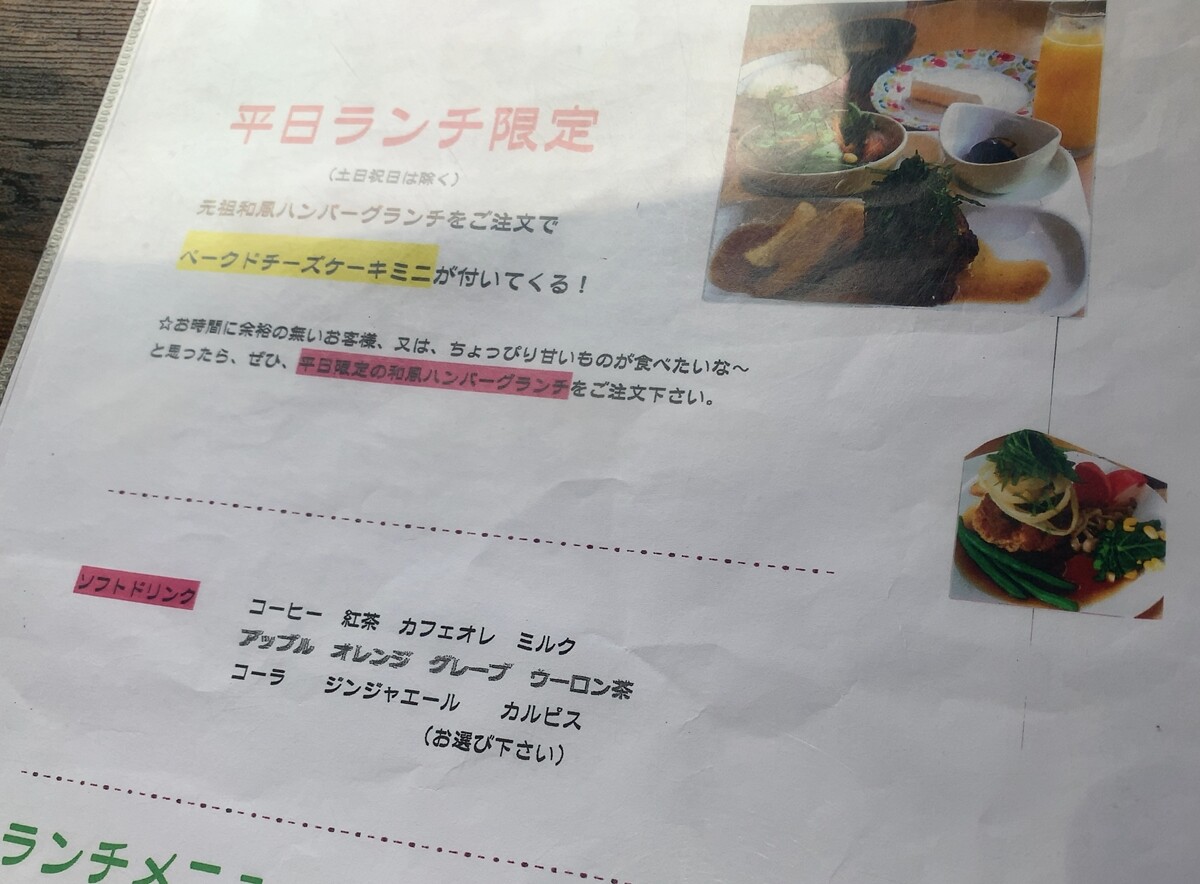 平日ランチ限定
（土日祝日は除く）
元祖和風ハンバーグランチをご注文で
ベークドチーズケーキミニが付いてくる！
☆お時間に余裕の無いお客様、又は、ちょっぴり甘いものが食べたいな～
と思ったら、ぜひ、平日限定の和風ハンバーグランチをご注文下さい。
ソフトドリンク
コーヒー 紅茶 カフェオレ ミルク
アップル オレンジ グレープ ウーロン茶
コーラ ジンジャエール カルピス
（お選び下さい）
ランチメニュー